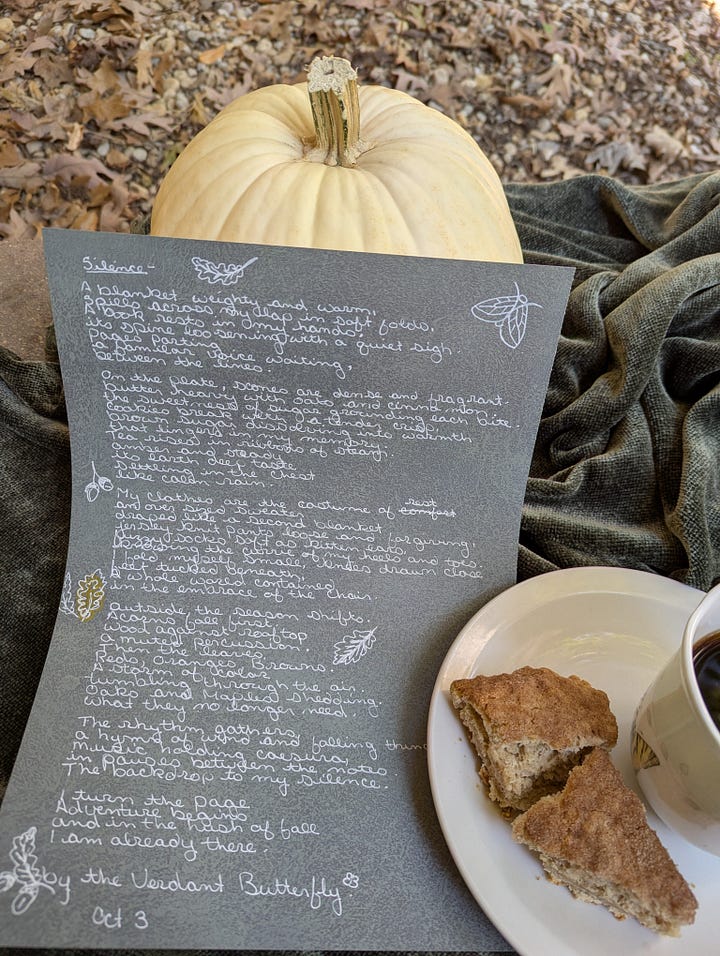 Silence-
A blanket weighty and warm,
spills across my lap in soft folds,
A book rests in my hands,
its spine loosening with a quiet sigh.
Pages parting
familiar voice waiting,
between the lines.
On the plate, scones are dense and fragrant.
butter heavy with oats and cinnamon
the sweetness of sugar grounding each bite.
Cookies break with a tender crisp,
brown sugar dissolving into warmth
that lingers in my memory.
Tea rises in ribbons of steam.
amber and steady
its earthy deep taste
settling in the chest
like calm rain.
My clothes are the costume of rest comfort
an over sized sweater
draped like a second blanket,
jersey knit pants loose and forgiving,
fuzzy socks soft as kitten ears,
the curve of my heels and toes.
I fold myself small, under drawn close
feet tucked beneath,
A whole world contained
in the embrace of the chair.
Outside the season shifts.
Acorns fall first
wood against rooftop
a muted percussion.
Then the leaves.
Reds, Oranges, Browns.
A storm of color
tumbling through the air.
Oaks and Maples shedding,
what they no longer need.
The rhythm gathers,
a hymn of wind and falling things
music holding
in pauses between the notes.
The backdrop to my silence.
I turn the page
Adventure begins
and in the hush of fall
I am already there.
by the Verdant Butterfly.
Oct 3